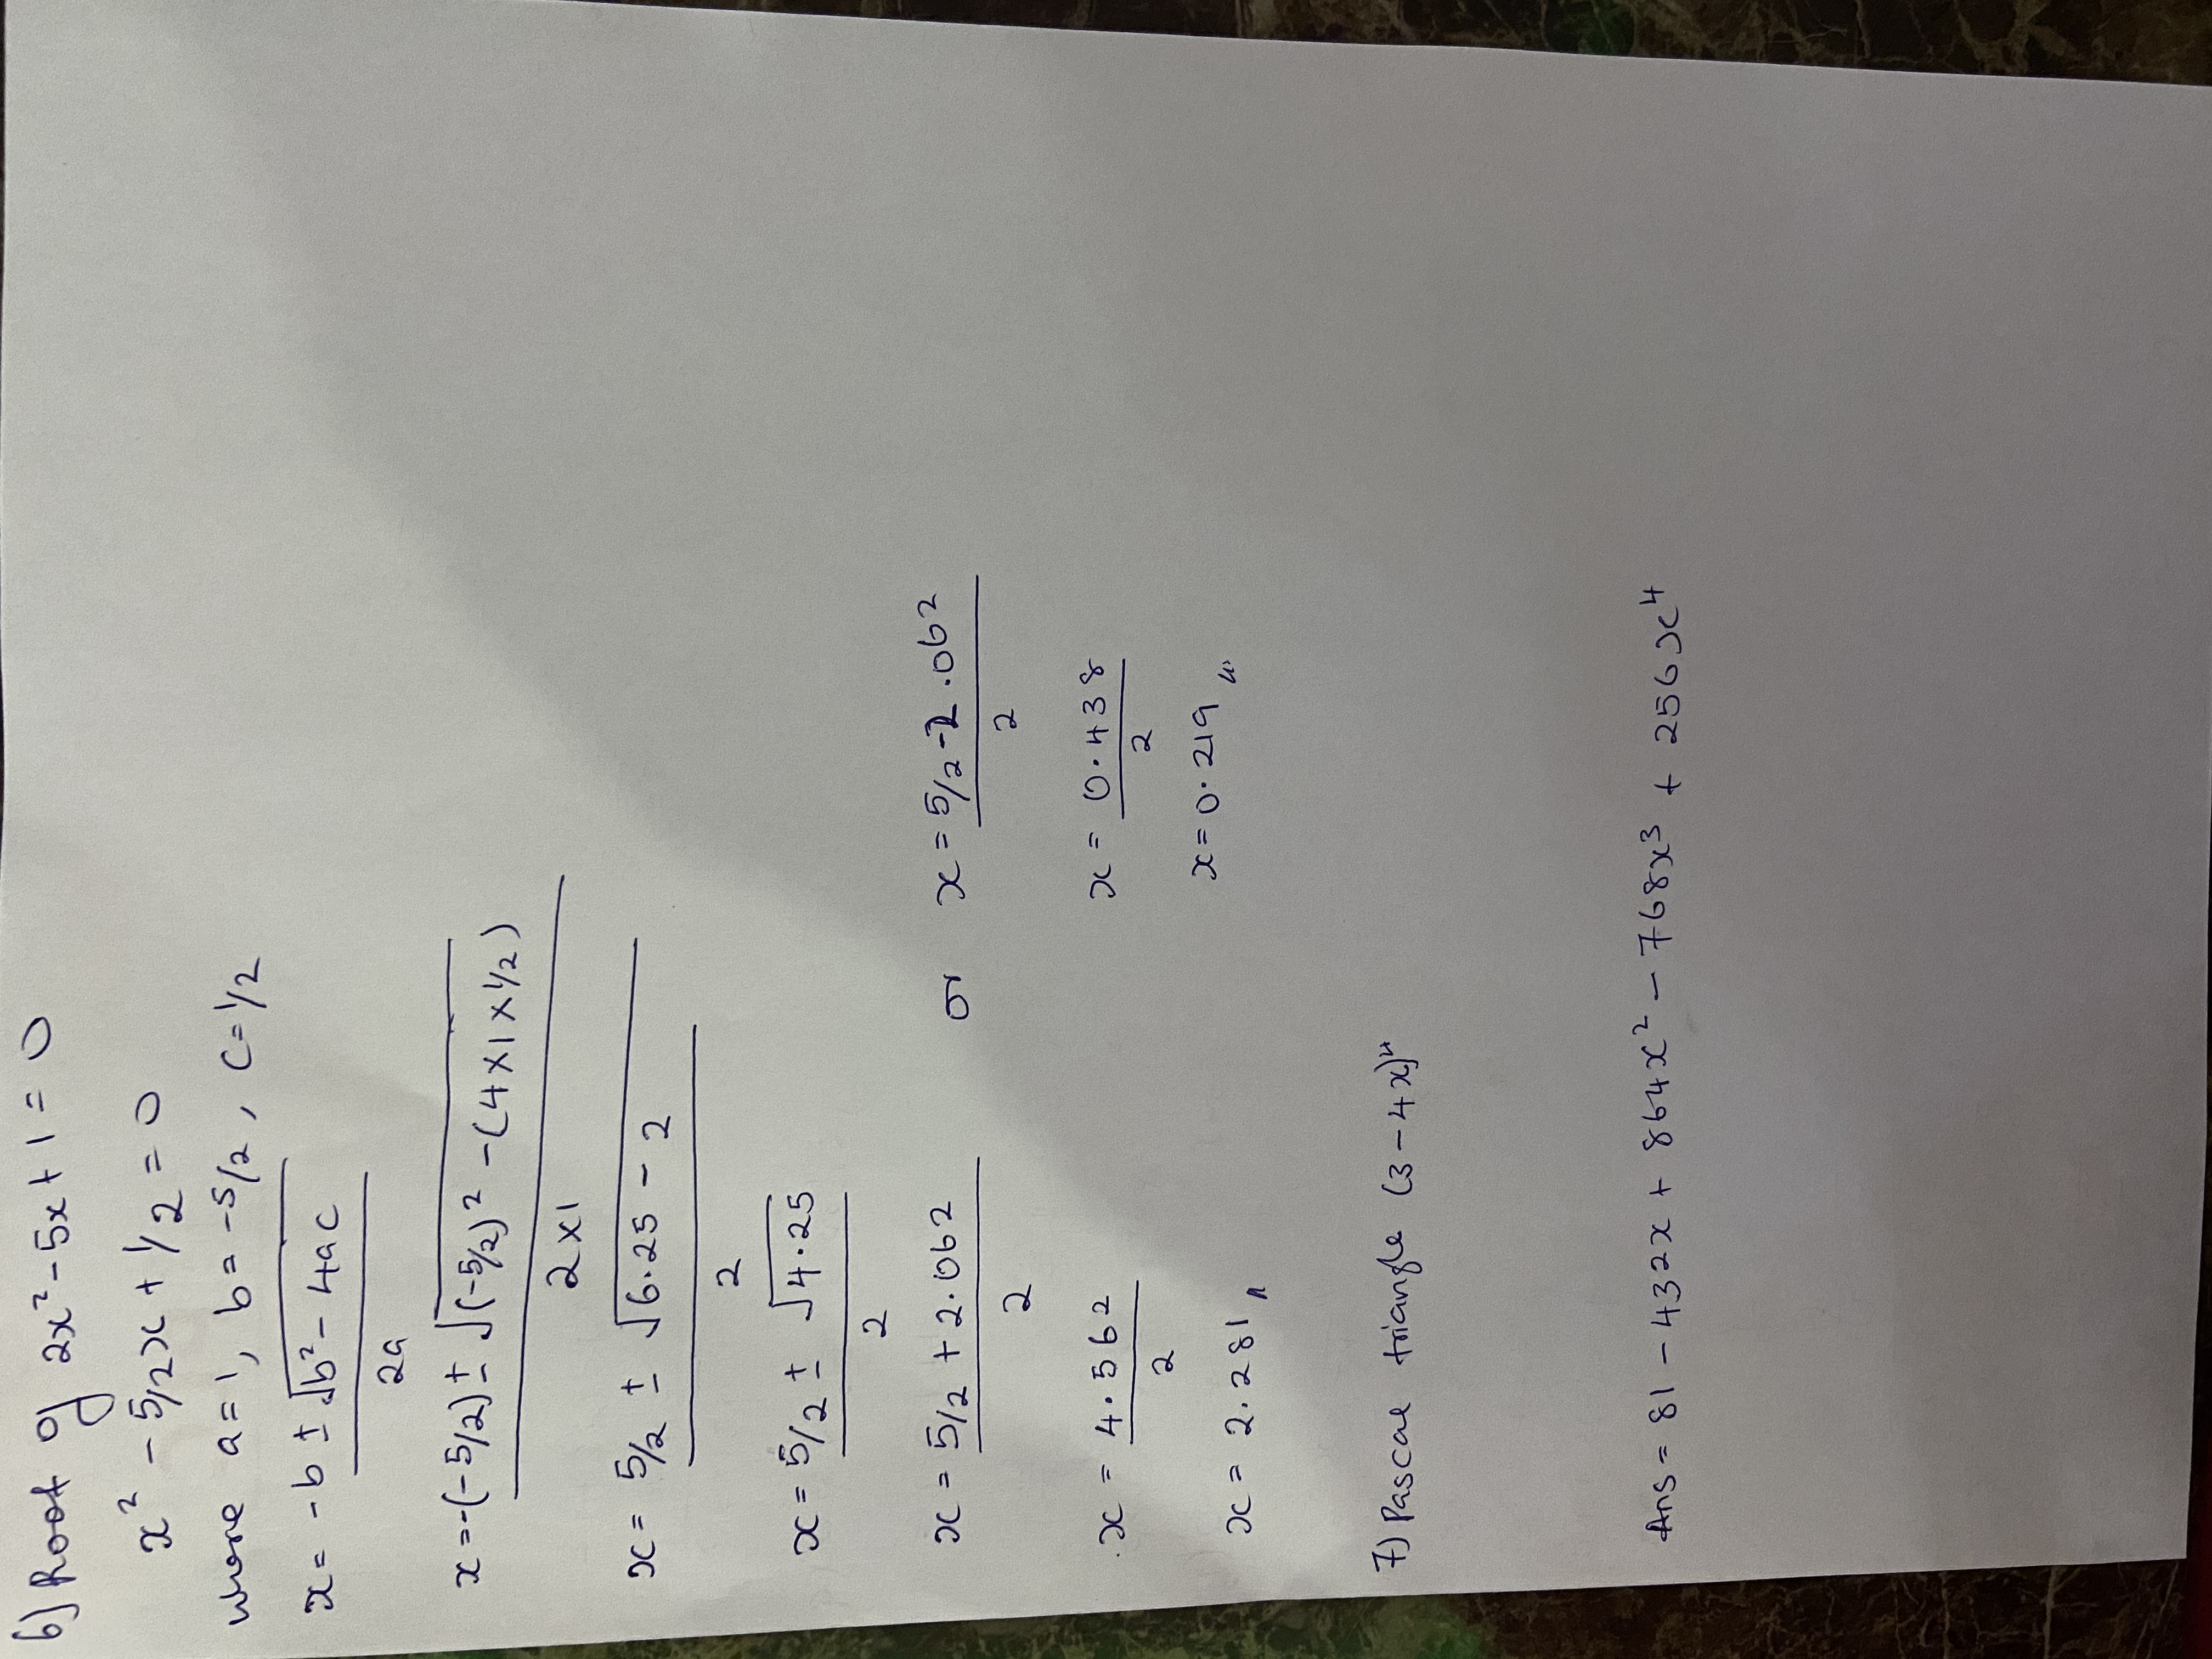 6) Root of 2x² - 5x + 1 = 0
x² - 5/2x + 1/2 = 0
where a = 1, b = -5/2, c = 1/2
x = -b ± √b² - 4ac
2a
x = -(-5/2) ± √(-5/2)² - (4 × 1 × 1/2)
2 × 1
x = 5/2 ± √6.25 - 2
2
x = 5/2 ± √4.25
2
x = 5/2 + 2.062 or x = 5/2 - 2.062
2 2
x = 4.562 x = 0.438
2 2
x = 2.281 x = 0.219
7) Pascal triangle (3 - 4x)⁴
Ans = 81 - 432x + 864x² - 768x³ + 256x⁴